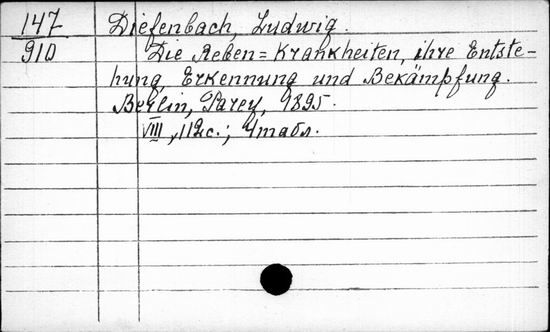 147 Diefenbach, Ludwig.
910 Die Reben=Krankheiten, ihre Entste-
hung, Erkennung und Bekämpfung.
Berlin, Parey, 1895.
VIII, 112c.; 4табл.